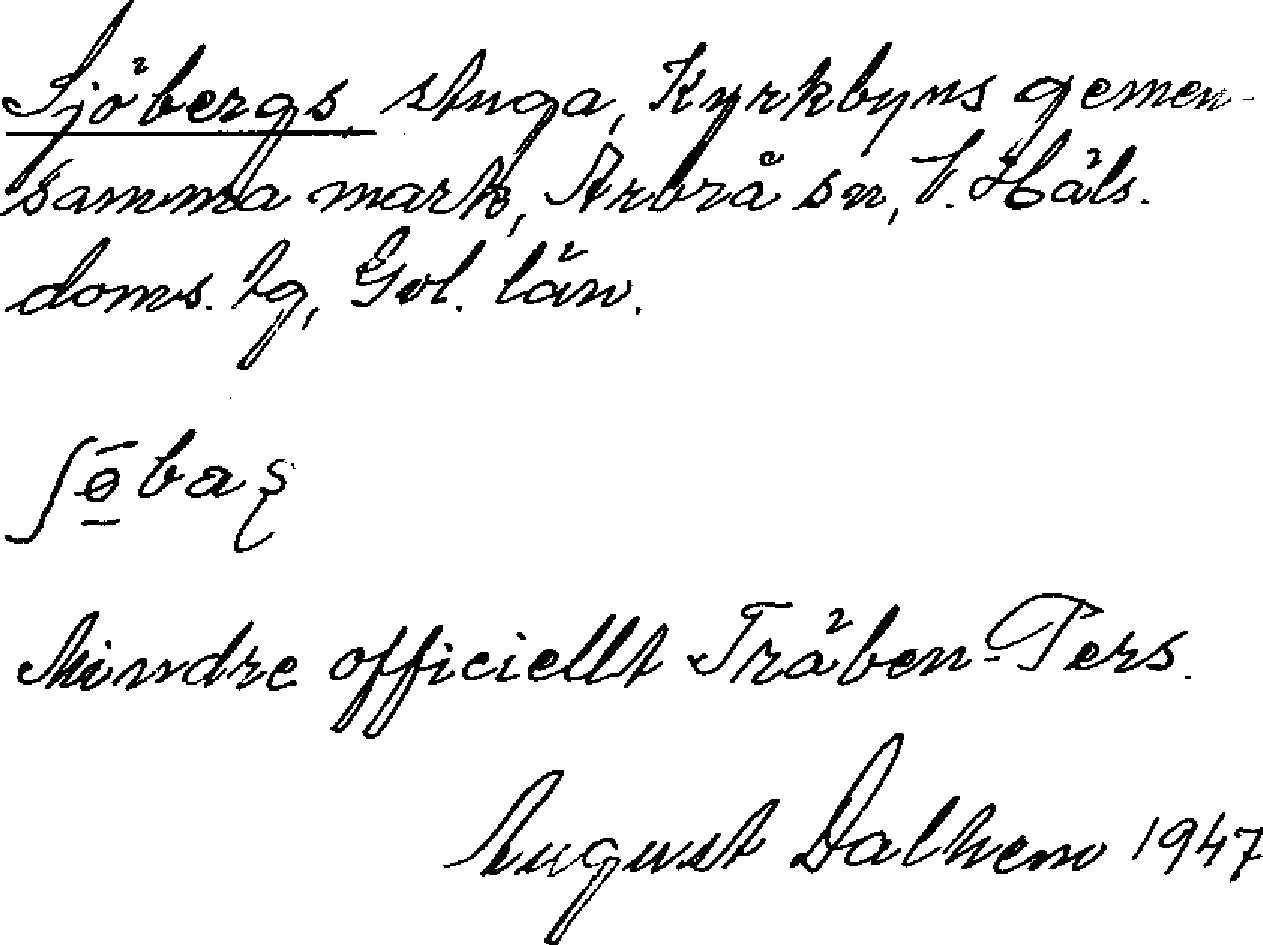 Sjöbergs, stuga, Kyrkbyns gemen-
samma mark, Arbrå sn, V. Häls.
doms. tg, Gvl. län.
ʃȫ̱baʂ
Mindre officiellt Träben-Pers.
August Dalhem 1947